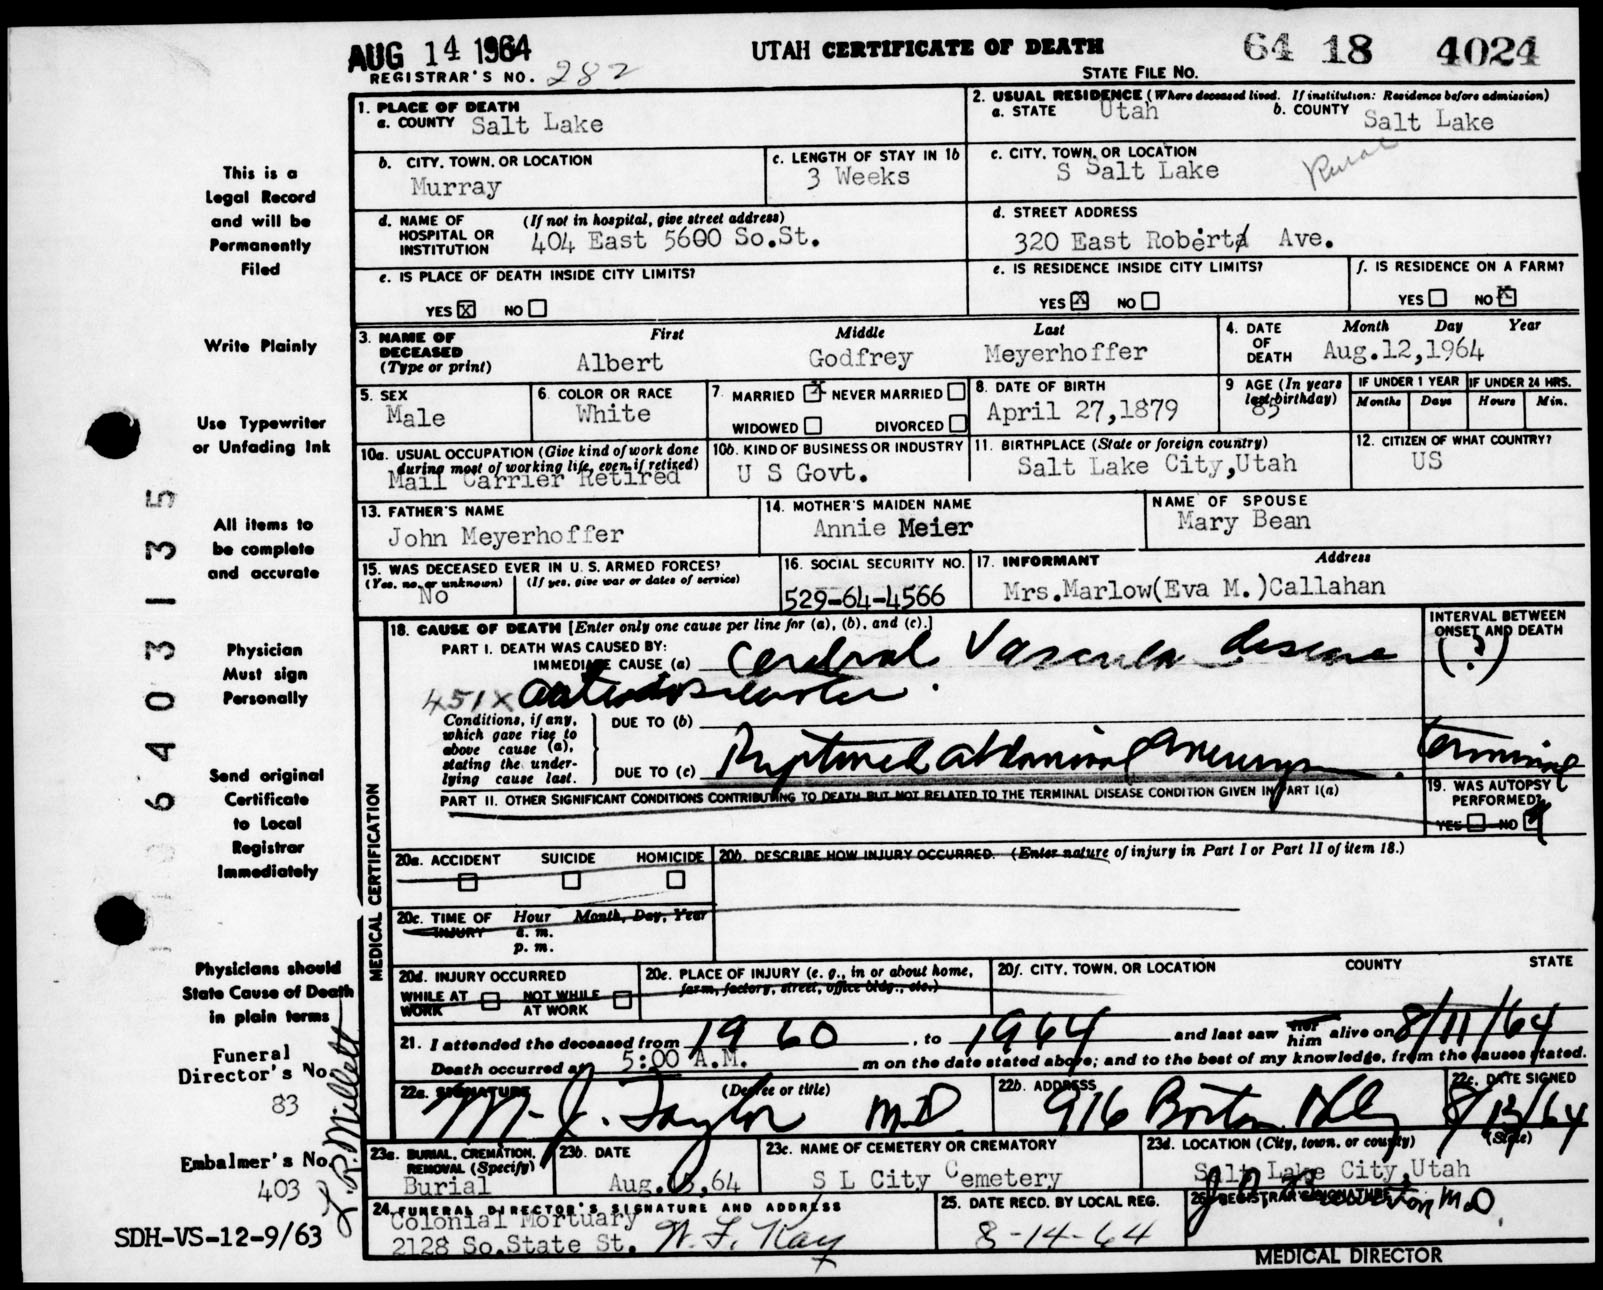 AUG 14 1964
UTAH CERTIFICATE OF DEATH
64 18 4024
REGISTRAR'S NO. 282
STATE FILE No.
1. PLACE OF DEATH
a. COUNTY Salt Lake
2. USUAL RESIDENCE (Where deceased lived. If institution: Residence before admission)
a. STATE Utah b. COUNTY Salt Lake
b. CITY, TOWN, OR LOCATION
Murray
c. LENGTH OF STAY IN 1b
3 Weeks
c. CITY, TOWN, OR LOCATION
S Salt Lake Rural
d. NAME OF HOSPITAL OR INSTITUTION (If not in hospital, give street address)
404 East 5600 So.St.
d. STREET ADDRESS
320 East Roberta Ave.
e. IS PLACE OF DEATH INSIDE CITY LIMITS?
YES X NO
e. IS RESIDENCE INSIDE CITY LIMITS?
YES X NO
f. IS RESIDENCE ON A FARM?
YES NO X
3. NAME OF DECEASED (Type or print)
First Middle Last
Albert Godfrey Meyerhoffer
4. DATE OF DEATH Month Day Year
Aug.12,1964
5. SEX
Male
6. COLOR OR RACE
White
7. MARRIED X NEVER MARRIED
WIDOWED DIVORCED
8. DATE OF BIRTH
April 27,1879
9 AGE (In years last birthday)
85
IF UNDER 1 YEAR IF UNDER 24 HRS.
Months Days Hours Min.
10a. USUAL OCCUPATION (Give kind of work done during most of working life, even if retired)
Mail Carrier Retired
10b. KIND OF BUSINESS OR INDUSTRY
U S Govt.
11. BIRTHPLACE (State or foreign country)
Salt Lake City,Utah
12. CITIZEN OF WHAT COUNTRY?
US
13. FATHER'S NAME
John Meyerhoffer
14. MOTHER'S MAIDEN NAME
Annie Meier
NAME OF SPOUSE
Mary Bean
15. WAS DECEASED EVER IN U. S. ARMED FORCES?
(Yes, no, or unknown) (If yes, give war or dates of service)
No
16. SOCIAL SECURITY NO.
529-64-4566
17. INFORMANT Address
Mrs.Marlow(Eva M.)Callahan
MEDICAL CERTIFICATION
18. CAUSE OF DEATH [Enter only one cause per line for (a), (b), and (c).]
INTERVAL BETWEEN ONSET AND DEATH
PART I. DEATH WAS CAUSED BY:
IMMEDIATE CAUSE (a) Cerebral Vascular disease (?)
451X
Conditions, if any, which gave rise to above cause (a), stating the underlying cause last.
DUE TO (b)
DUE TO (c) Ruptured abdominal Aneurysm. terminal
PART II. OTHER SIGNIFICANT CONDITIONS CONTRIBUTING TO DEATH BUT NOT RELATED TO THE TERMINAL DISEASE CONDITION GIVEN IN PART I(a)
19. WAS AUTOPSY PERFORMED?
YES NO
20a. ACCIDENT SUICIDE HOMICIDE
20b. DESCRIBE HOW INJURY OCCURRED. (Enter nature of injury in Part I or Part II of item 18.)
20c. TIME OF INJURY Hour Month, Day, Year
a. m.
p. m.
20d. INJURY OCCURRED
WHILE AT WORK NOT WHILE AT WORK
20e. PLACE OF INJURY (e. g., in or about home, farm, factory, street, office bldg., etc.)
20f. CITY, TOWN, OR LOCATION COUNTY STATE
21. I attended the deceased from 1960, to 1964 and last saw her him alive on 8/11/64
Death occurred at 5:00 A.M. m on the date stated above; and to the best of my knowledge, from the causes stated.
22a. SIGNATURE (Degree or title)
M. J. Taylor M.D.
22b. ADDRESS
916 Boston Bldg
22c. DATE SIGNED
8/13/64
23a. BURIAL, CREMATION, REMOVAL (Specify)
Burial
23b. DATE
Aug.15,64
23c. NAME OF CEMETERY OR CREMATORY
S L City Cemetery
23d. LOCATION (City, town, or county) (State)
Salt Lake City,Utah
24. FUNERAL DIRECTOR'S SIGNATURE AND ADDRESS
Colonial Mortuary
2128 So.State St. W. F. Kay
25. DATE RECD. BY LOCAL REG.
8-14-64
26. REGISTRAR'S SIGNATURE
M.D.
MEDICAL DIRECTOR
This is a
Legal Record
and will be
Permanently
Filed
Write Plainly
Use Typewriter
or Unfading Ink
All items to
be complete
and accurate
Physician
Must sign
Personally
Send original
Certificate
to Local
Registrar
Immediately
Physicians should
State Cause of Death
in plain terms
Funeral
Director's No.
83
Embalmer's No.
403
SDH-VS-12-9/63
L. R. Millett
6 4 0 3 1 3 5